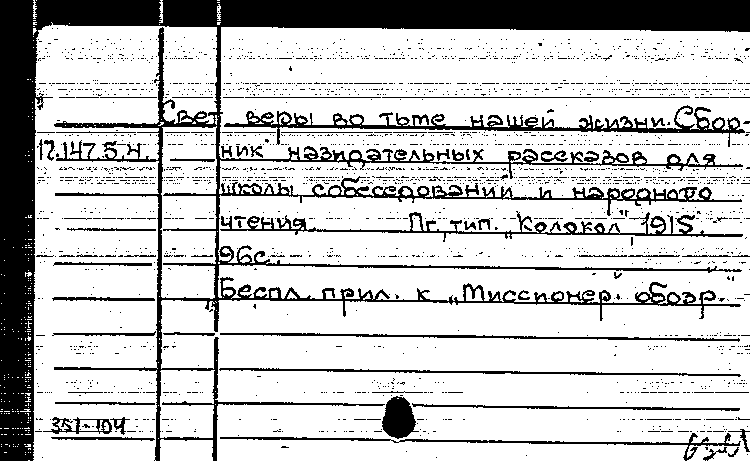 Свет веры во тьме нашей жизни. Сбор-
17.147.5.4. ник назидательных рассказов для
школы, собеседований и народного
чтения. Пг., тип. „Колокол", 1915.
96с.
Беспл. прил. к „Миссионер. обозр."
351-104